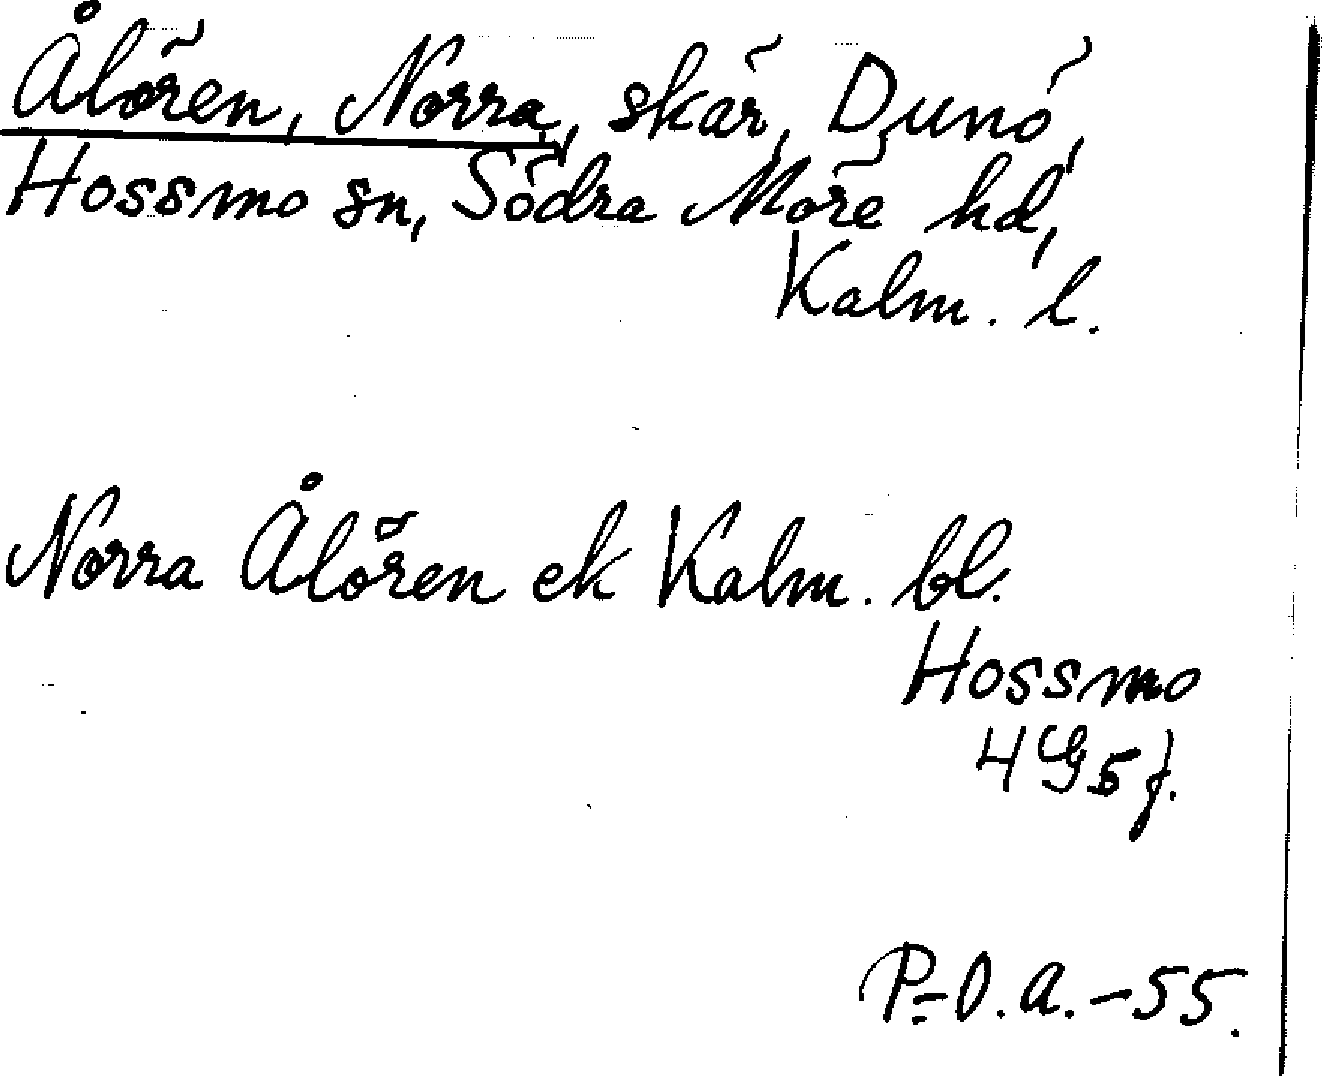 Ålören, Norra, skär, Dunö,
Hossmo sn, Södra Möre hd,
Kalm. l.
Norra Ålören ek Kalm. bl.
Hossmo
4G5f.
P-O.A.-55.